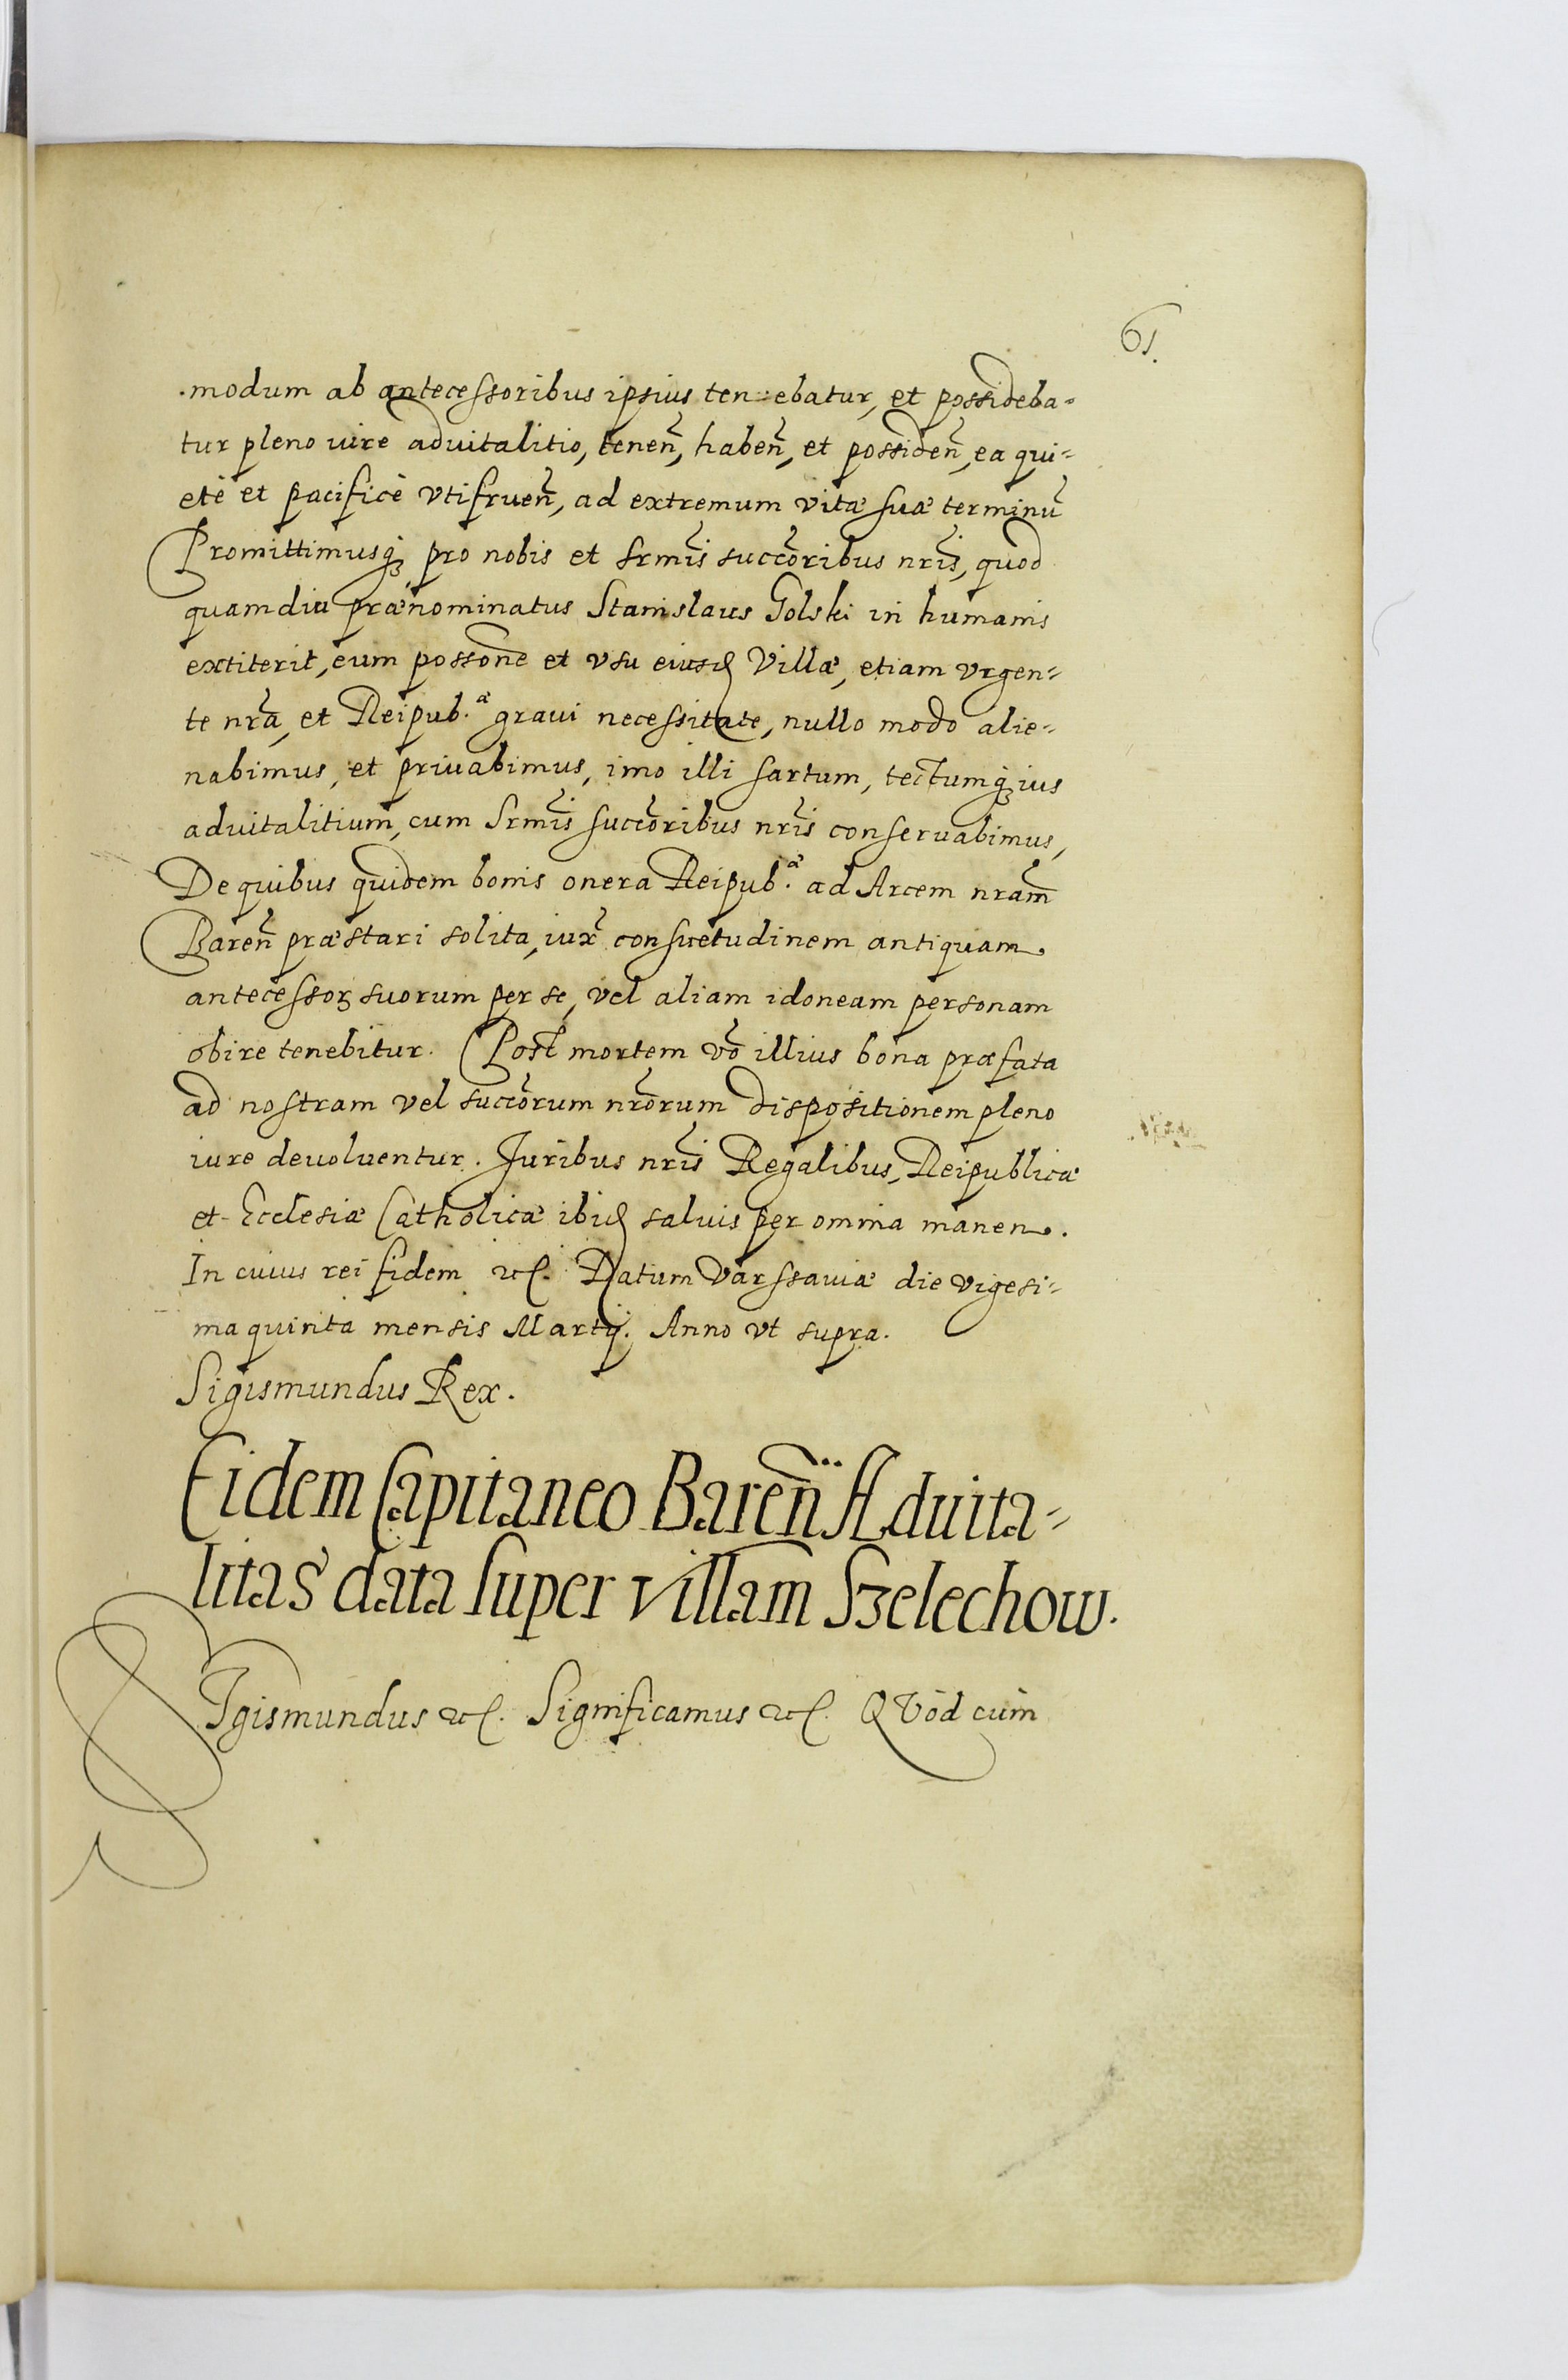 61.
modum ab antecessoribus ipsius ten=ebatur, et possideba=
tur pleno iure aduitalitio, tenen̄, haben̄, et possiden̄, ea qui=
etè et pacificè vtifruen̄, ad extremum vitæ suæ terminū
Promittimusq́ꝫ pro nobis et Srmīs succōribus nrīs, quod
quamdiu prænominatus Stanislaus Golski in humanis
extiterit, eum possōne et vsu eiusd̄ Villæ, etiam vrgen=
te nrā, et Reipub.æ graui necessitate, nullo modo alie=
nabimus, et priuabimus, imo illi sartum, tectumq́ꝫ ius
aduitalitium, cum Srmīs succōribus nrīs conseruabimus,
De quibus quidem bonis onera Reipub.æ ad Arcem nram̄
Baren̄ præstari solita, iux̄ consuetudinem antiquam
antecessoꝝ suorum per se, vel aliam idoneam personam
obire tenebitur. Post mortem vō illius bona præfata
ad nostram vel succōrum nrōrum dispositionem pleno
iure deuoluentur. Juribus nrīs Regalibus, Reipublicæ
et Ecclesiæ Catholicæ ibid̄ saluis per omnia manen.
In cuius rei fidem &c. Datum Varssauiæ die vigesi=
ma quinta mensis Martij. Anno vt supra.
Sigismundus Rex.
Eidem Capitaneo Baren̄ Aduita=
litas data super villam Szelechow.
SIgismundus &c. Significamus &c. QVòd cùm